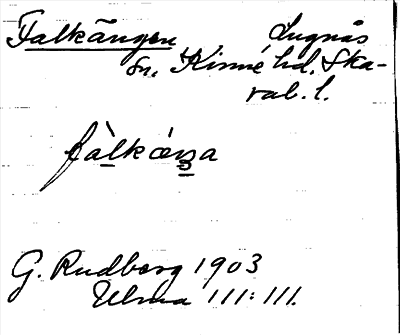 Falkängen Lugnås
sn. Kinne hd. Ska-
rab. l.
fàlkæŋa
G. Rudberg 1903
Ulma 111:111.